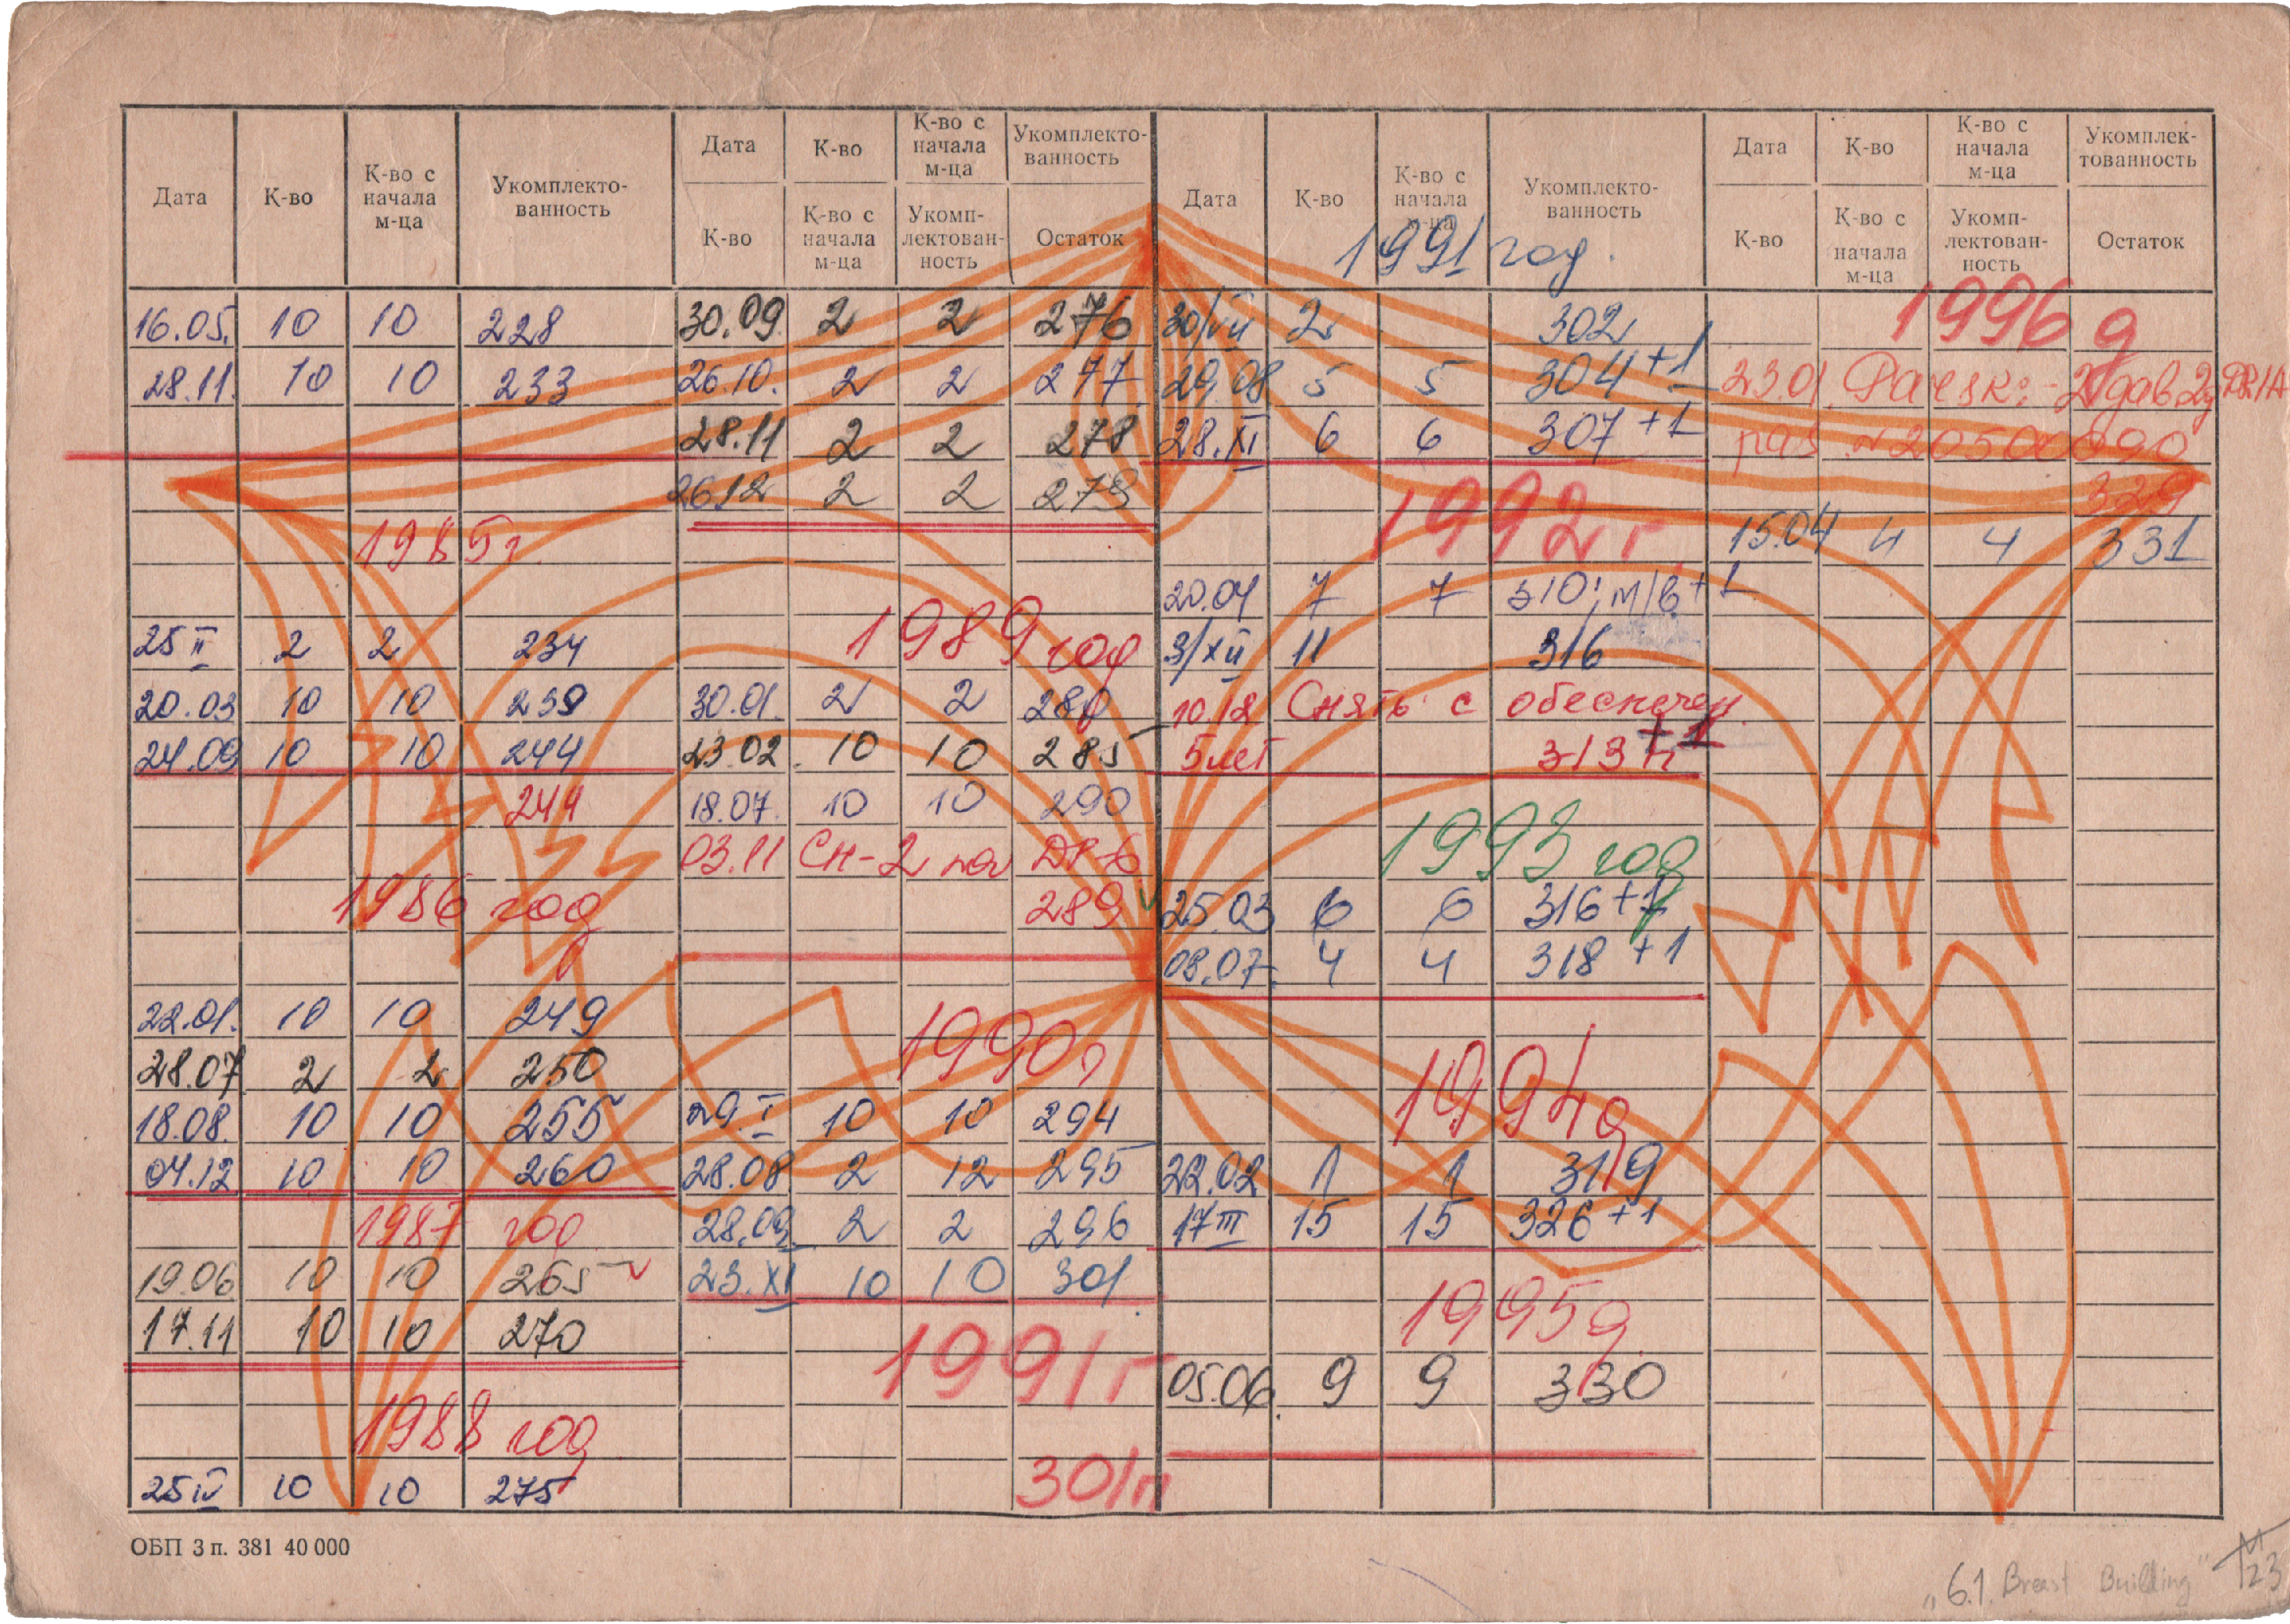 Дата К-во К-во с начала м-ца Укомплекто-ванность
Дата К-во К-во с начала м-ца Укомплекто-ванность
К-во К-во с начала м-ца Укомп-лектован-ность Остаток
16.05. 10 10 228
28.11. 10 10 233
1985г.
25 II 2 2 234
20.03 10 10 239
24.09 10 10 244
244
1986 год
22.01. 10 10 249
28.07 2 2 250
18.08. 10 10 255
04.12 10 10 260
1987 год
19.06 10 10 265
17.11 10 10 270
1988 год
25 IV 10 10 275
30.09 2 2 276
26.10. 2 2 277
28.11 2 2 278
26.12 2 2 279
1989 год
30.01. 2 2 280
23.02. 10 10 285
18.07. 10 10 290
03.11 Сн-2
289
1990г
29.I 10 10 294
28.08 2 12 295
28.09. 2 2 296
23.XI 10 10 301
1991г
301п
Дата К-во К-во с начала м-ца Укомплекто-ванность
Дата К-во К-во с начала м-ца Укомплек-тованность
К-во К-во с начала м-ца Укомп-лектован-ность Остаток
1991 год.
30/VII 2 302
29.08 5 5 304+1
28.XI 6 6 307+1
1992г.
20.04 7 7 310; м/в+1
3/XII 11 316
10.12 Снять с обеспечен.
5 лет 313п +1
1993 год
25.03 6 6 316+1
08.07. 4 4 318+1
1994g
22.02 1 1 319
17 III 15 15 326+1
1995g
05.06. 9 9 330
1996g
23.01.
329
15.04 4 4 331
ОБП 3 п. 381 40 000
„6.1. Breast Building"
23